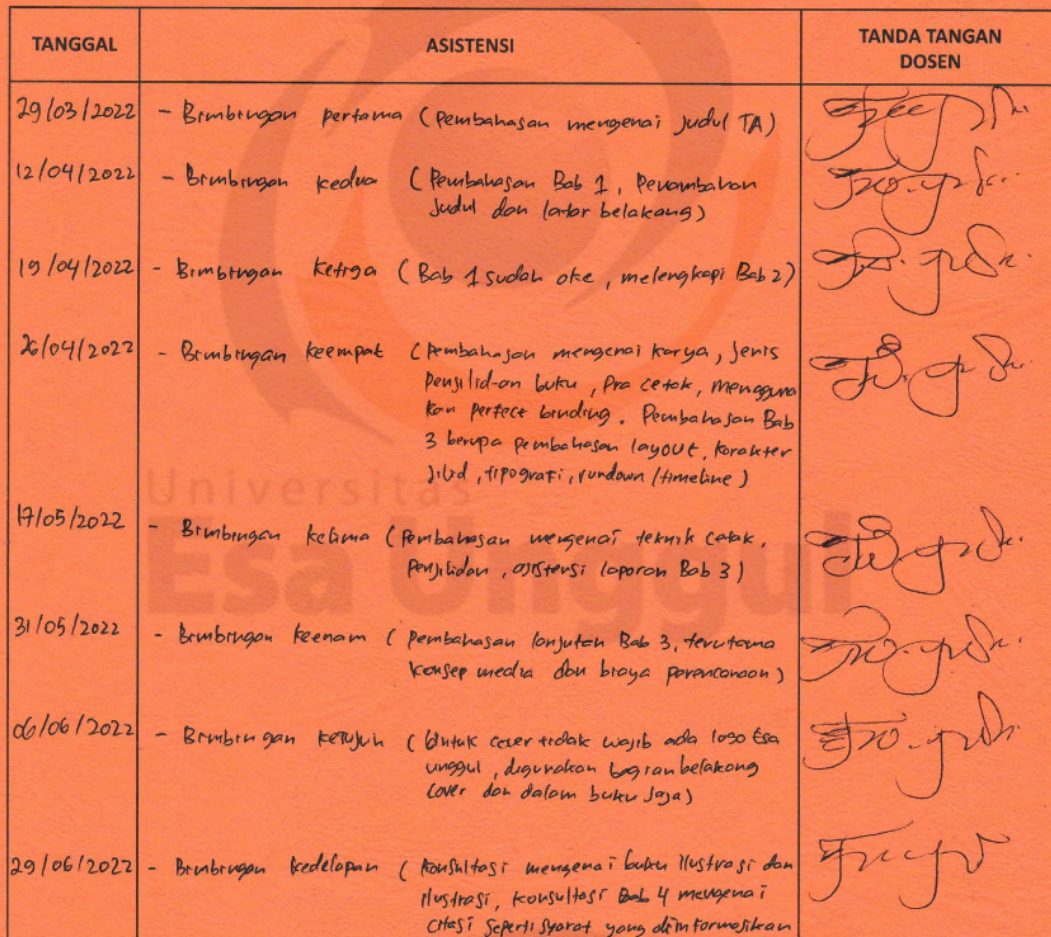 TANGGAL ASISTENSI TANDA TANGAN
DOSEN
29/03/2022 - Bimbingan pertama (Pembahasan mengenai Judul TA)
12/04/2022 - Bimbingan kedua (Pembahasan Bab 1, Penambahan
Judul dan latar belakang)
19/04/2022 - Bimbingan Ketiga (Bab 1 sudah oke, melengkapi Bab 2)
26/04/2022 - Bimbingan keempat (Pembahasan mengenai karya, Jenis
Penjilid-an buku, Pra cetak, mengguna
kan perfect binding. Pembahasan Bab
3 berupa pembahasan layout, karakter
Jilid, tipografi, rundown/timeline)
Universitas
Esa Unggul
17/05/2022 - Bimbingan kelima (Pembahasan mengenai teknik cetak,
Penjilidan, asistensi laporan Bab 3)
31/05/2022 - Bimbingan keenam (Pembahasan lanjutan Bab 3, terutama
konsep media dan biaya perencanaan)
06/06/2022 - Bimbingan ketujuh (Untuk cover tidak wajib ada logo Esa
unggul, digunakan bagian belakang
cover dan dalam buku saja)
29/06/2022 - Bimbingan kedelapan (Konsultasi mengenai buku ilustrasi dan
ilustrasi, konsultasi Bab 4 mengenai
citasi seperti syarat yang diinformasikan